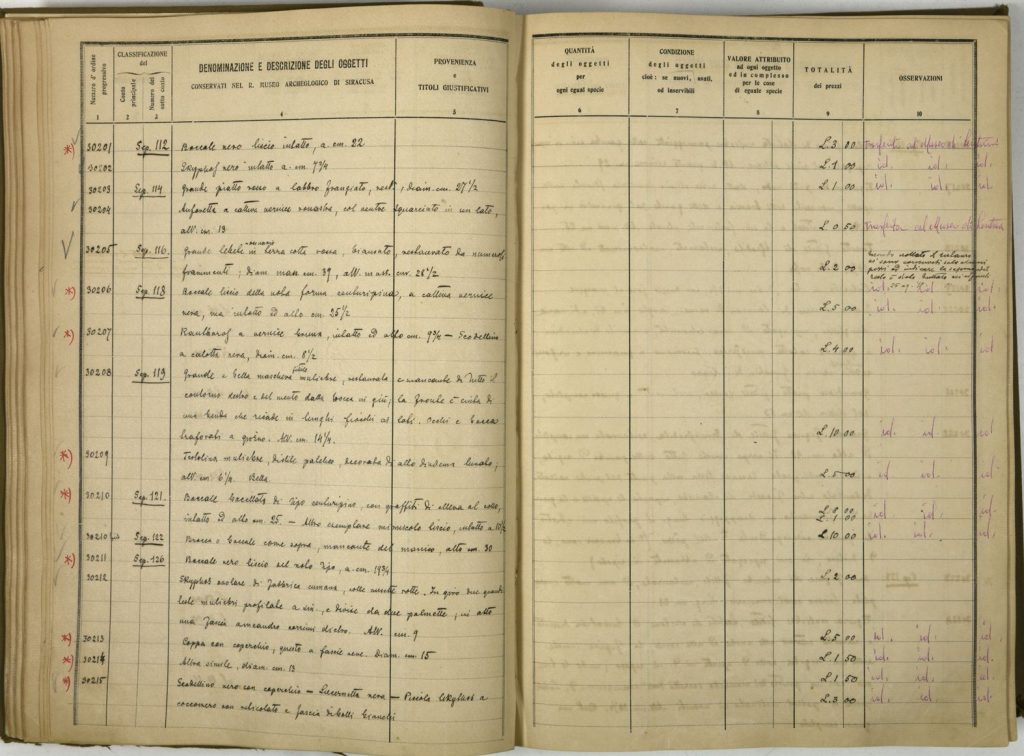 Numero d'ordine progressivo
CLASSIFICAZIONE
del
Conto principale
Numero del sotto conto
DENOMINAZIONE E DESCRIZIONE DEGLI OGGETTI
CONSERVATI NEL R. MUSEO ARCHEOLOGICO DI SIRACUSA
PROVENIENZA
e
TITOLI GIUSTIFICATIVI
QUANTITÀ
degli oggetti
per
ogni egual specie
CONDIZIONE
degli oggetti
cioè: se nuovi, usati,
od inservibili
VALORE ATTRIBUITO
ad ogni oggetto
od in complesso
per le cose
di eguale specie
TOTALITÀ
dei prezzi
OSSERVAZIONI
1 2 3 4 5 6 7 8 9 10
*) 30201 Sep. 112 Boccale nero liscio intatto, a. cm. 22 L. 3 00
30202 Skyphos nero intatto a. cm. 7 3/4 L. 1 00 id. id. id.
30203 Sep. 114 Grande piatto rosso a labbro frangiato, diam. cm. 27 1/2 L. 1 00 id. id. id.
30204 Anforetta a cattiva vernice rossastra, col ventre squarciato in un lato,
alt. cm. 13 L. 0 50
30205 Sep. 116 Grande in terra cotta rossa, restaurato da numerosi
frammenti, diam. mass. cm. 39, alt. mass. cm. 28 1/2 L. 2 00
*) 30206 Sep. 118 Boccale liscio della nota forma centuripina, a cattiva vernice id. id. id.
nera, ma intatto ed alto cm. 25 1/2 L. 5 00
*) 30207 Kantharos a vernice intatto ed alto cm. 9 3/4 — Scodellino
a calotta nera, diam. cm. 8 1/2 L. 4 00 id. id. id.
30208 Sep. 119 Grande e bella maschera fittile muliebre, restaurata e mancante di tutto il
contorno destro e del mento dalla bocca in giù; la fronte è cinta di
una benda che ricade in lunghi fiocchi ai lati. Occhi e bocca
traforati a giorno. Alt. cm. 14 1/4. L. 10 00 id. id. id
*) 30209 Testolina muliebre, decorata di alto diadema lunato;
alt. cm. 6 1/2. Bella. L. 5 00 id id. id.
*) 30210 Sep. 121. Boccale di tipo centuripino, con graffiti di al collo,
intatto ed alto cm. 25. — Altro esemplare minuscolo liscio, intatto a. L. 1 00 id. id. id.
30210 bis Sep. 122 Brocca o boccale come sopra, mancante del manico, alto cm. 30 L. 10 00 id. id. id
*) 30211 Sep. 126 Boccale nero liscio del noto tipo, a. cm. 19 3/4 L. 2 00
30212 Skyphos di fabbrica cumana, colle ansette rotte. In giro due grandi
teste muliebri profilate a sin., e divise da due palmette; in alto
una fascia a meandro Alt. cm. 9 L. 5 00 id. id. id.
*) 30213 Coppa con coperchio, questo a fascie nere. Diam. cm. 15 L. 1 50 id. id. id.
*) 30214 Altra simile, diam. cm. 13 L. 1 50 id. id. id.
*) 30215 Scodellino nero con coperchio — Lucernetta nera — Piccolo skyphos a
con reticolato e fascia di L. 3 00 id. id. id